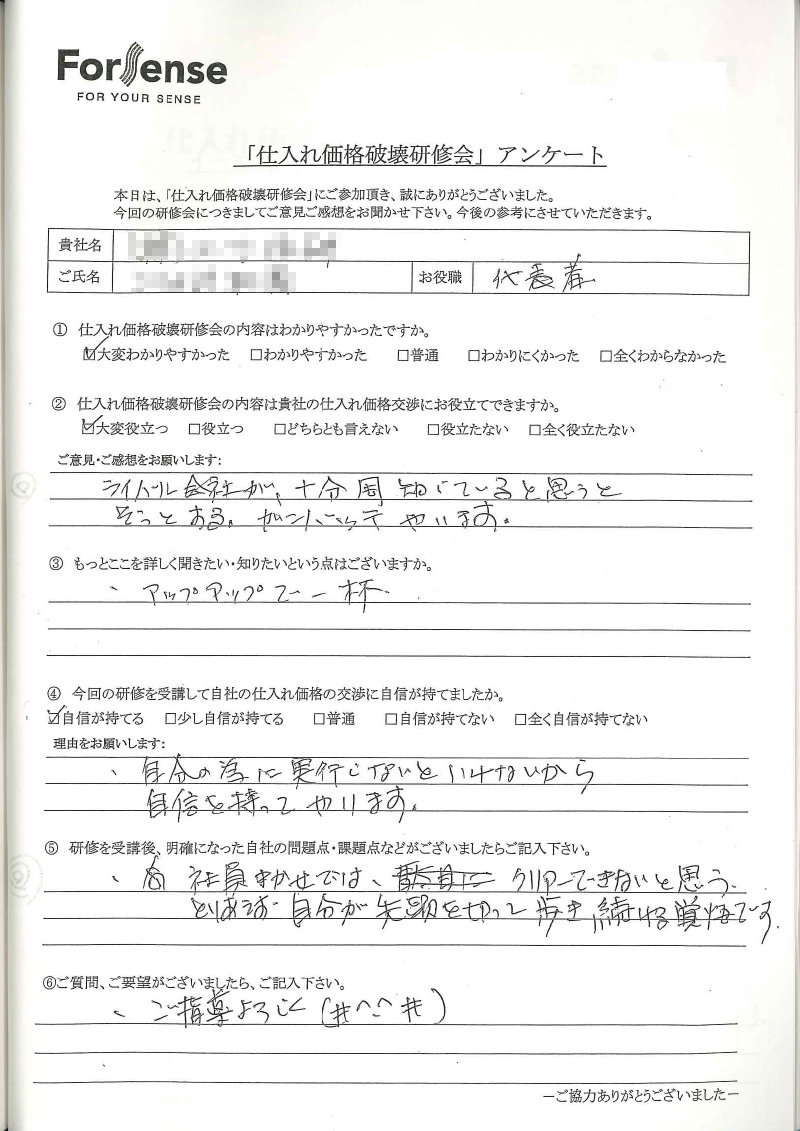 ForSense
FOR YOUR SENSE
「仕入れ価格破壊研修会」アンケート
本日は、「仕入れ価格破壊研修会」にご参加頂き、誠にありがとうございました。
今回の研修会につきましてご意見ご感想をお聞かせ下さい。今後の参考にさせていただきます。
貴社名
ご氏名 お役職 代表者
① 仕入れ価格破壊研修会の内容はわかりやすかったですか。
☑大変わかりやすかった □わかりやすかった □普通 □わかりにくかった □全くわからなかった
② 仕入れ価格破壊研修会の内容は貴社の仕入れ価格交渉にお役立てできますか。
☑大変役立つ □役立つ □どちらとも言えない □役立たない □全く役立たない
ご意見・ご感想をお願いします:
ライバル会社が、十分周知していると思うと
ぞっとある。ガンバッテやります。
③ もっとここを詳しく聞きたい・知りたいという点はございますか。
、アップアップで一杯.
④ 今回の研修を受講して自社の仕入れ価格の交渉に自信が持てましたか。
☑自信が持てる □少し自信が持てる □普通 □自信が持てない □全く自信が持てない
理由をお願いします:
、自分の為に実行しないといけないから
自信を持ってやります。
⑤ 研修を受講後、明確になった自社の問題点・課題点などがございましたらご記入下さい。
、社員まかせでは、クリアーできないと思う.
とりあえず自分が先頭を切って歩き続ける覚悟です.
⑥ご質問、ご要望がございましたら、ご記入下さい。
、ご指導よろしく(#^.^#)
－ご協力ありがとうございました－